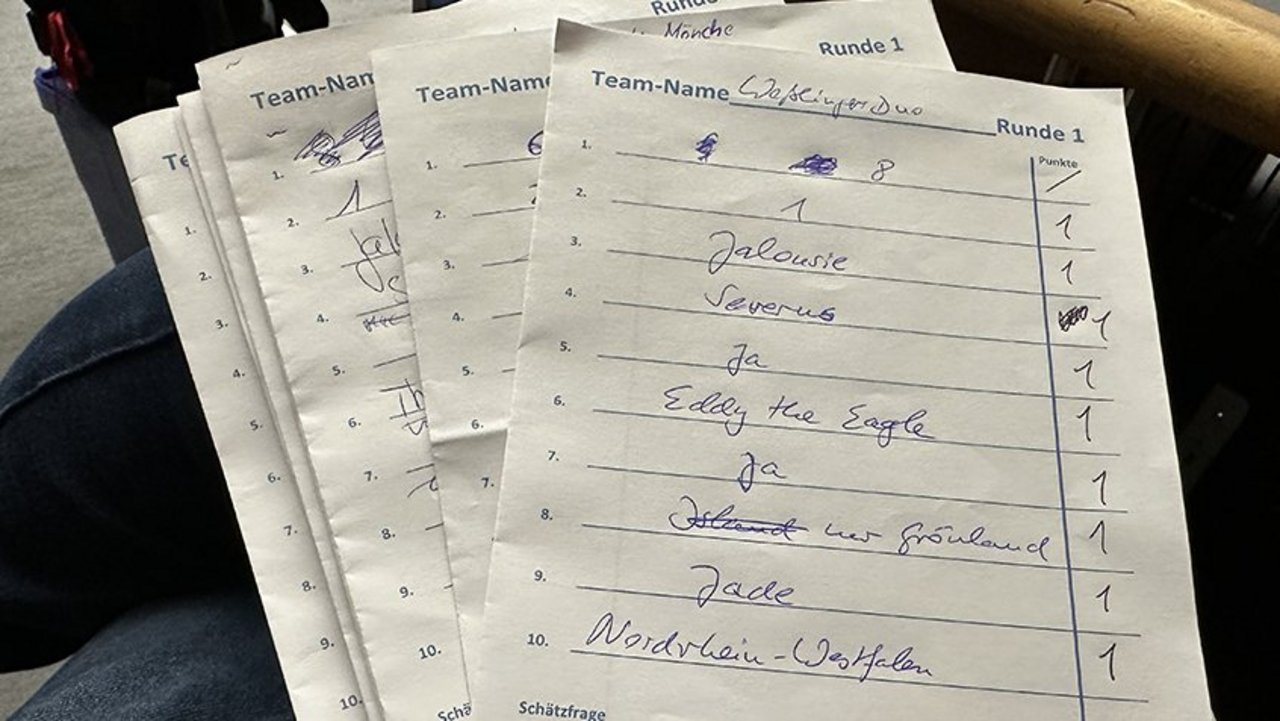 Runde
Mönche
Runde 1
Te
Team-Nam
Team-Name
Team-Name Weßlinger Duo Runde 1
Punkte
1. 8 /
2. 1 1
3. Jalousie 1
4. Severus 1
5. Ja 1
6. Eddy the Eagle 1
7. Ja 1
8. Island nur Grönland 1
9. Jade 1
10. Nordrhein-Westfalen 1
Schätzfrage
1.
2.
3.
4.
5.
6.
7.
Schä
1.
2. 1
3. Jal
4.
5.
6. Th
7.
8.
9.
10.
1.
2.
3.
4.
5.
6.
7.
8.
9.
10.